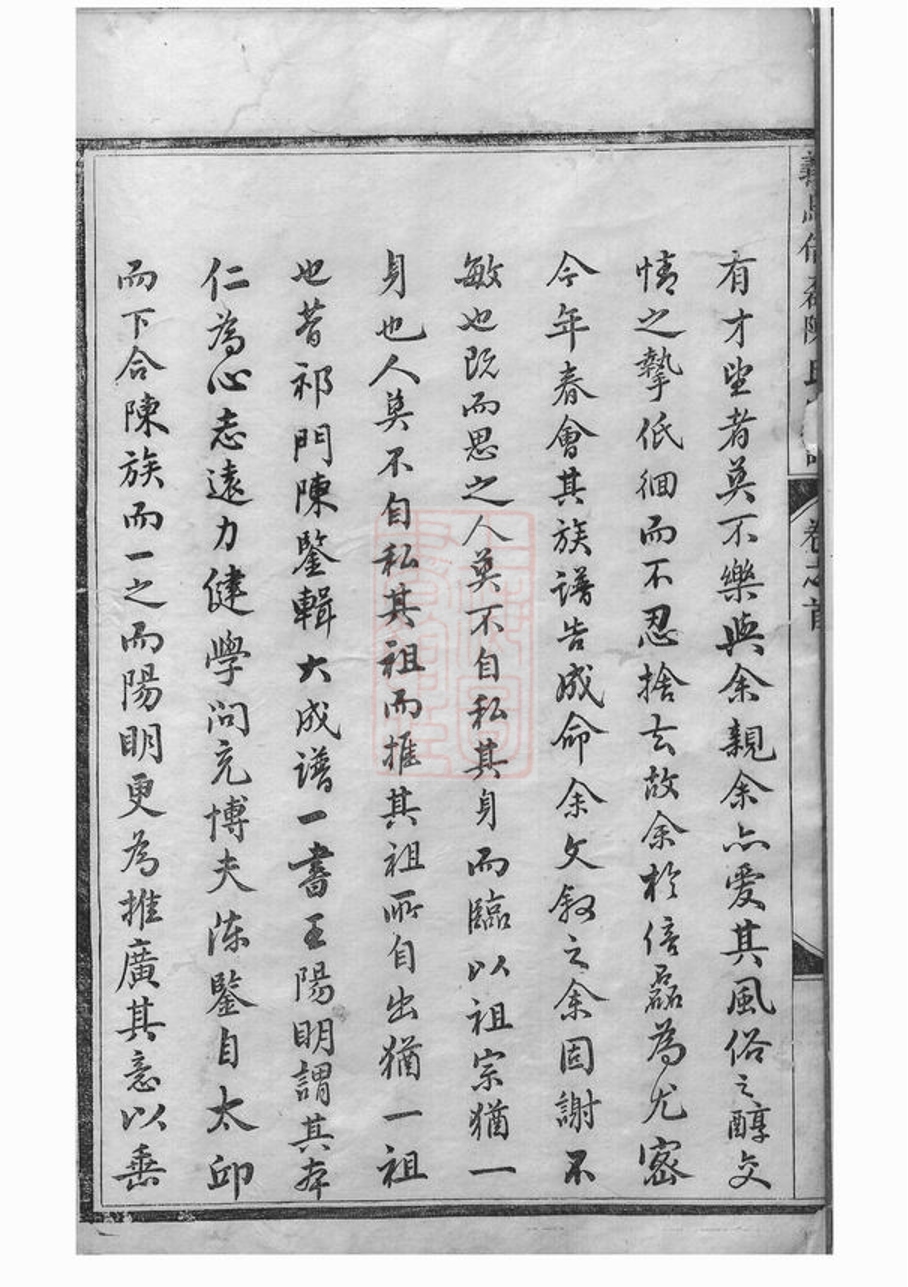 有才望者莫不樂與余親余亦愛其風俗之醇交
情之摯低徊而不忍捨去故余於倍磊為尤密
今年春會其族譜告成命余文叙之余固謝不
敏也既而思之人莫不自私其身而臨以祖宗猶一
身也人莫不自私其祖而推其祖所自出猶一祖
也昔祁門陳鑒輯大成譜一書王陽明謂其本
仁為心志遠力健學問充博夫陳鑒自太邱
而下合陳族而一之而陽明更為推廣其意以垂
陳氏
卷之首